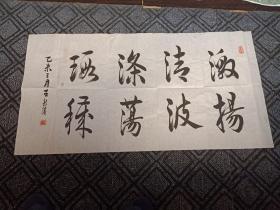 激揚
清波
滌蕩
瑕穢
乙未三月王